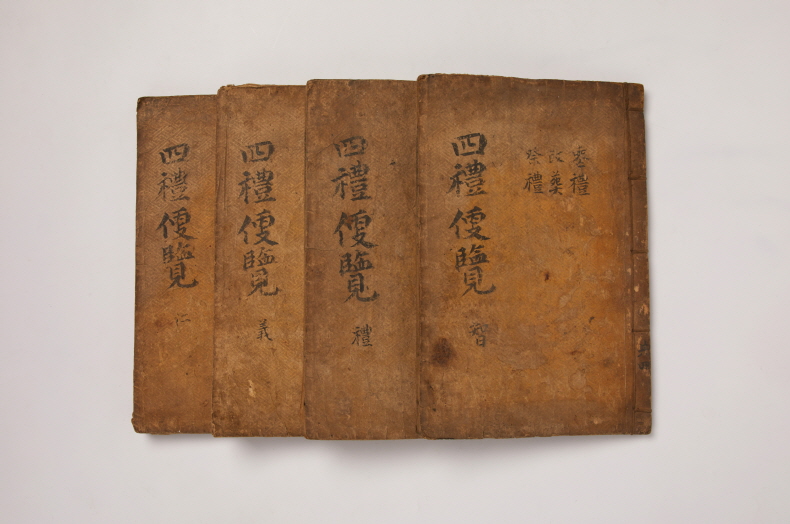 四禮便覽 仁
四禮便覽 義
四禮便覽 禮
喪禮
改葬
祭禮
四禮便覽 智